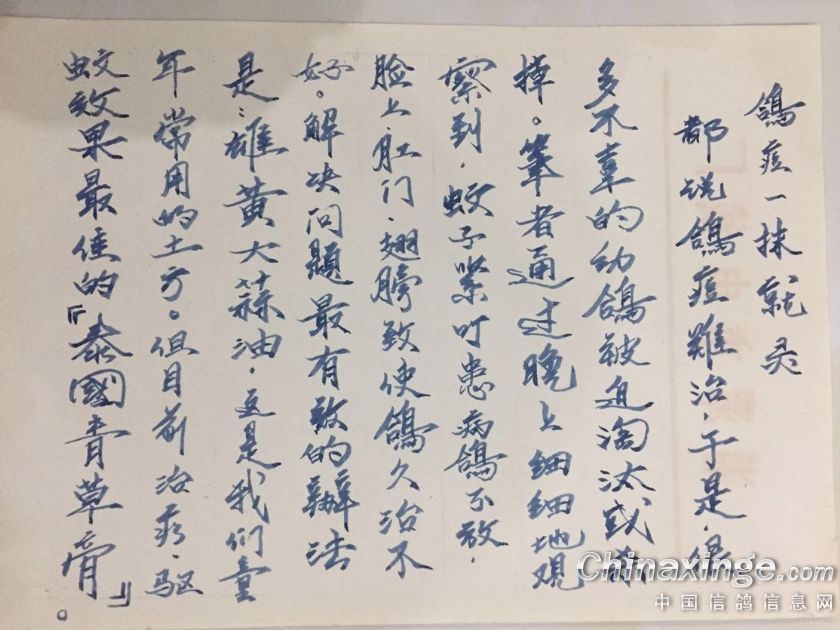 鸽痘一抹就灵
都说鸽痘难治，于是，很
多不幸的幼鸽被迫淘汰或弃
掉。笔者通过晚上细细地观
察到，蚊子紧叮患病鸽不放，
脸上、肛门、翅膀致使鸽久治不
好。解决问题最有效的办法
是：雄黄大蒜油，这是我们童
年常用的土方。但目前治疗、驱
蚊效果最佳的「泰國青草膏」。
Chinaxinge.com
中国信鸽信息网